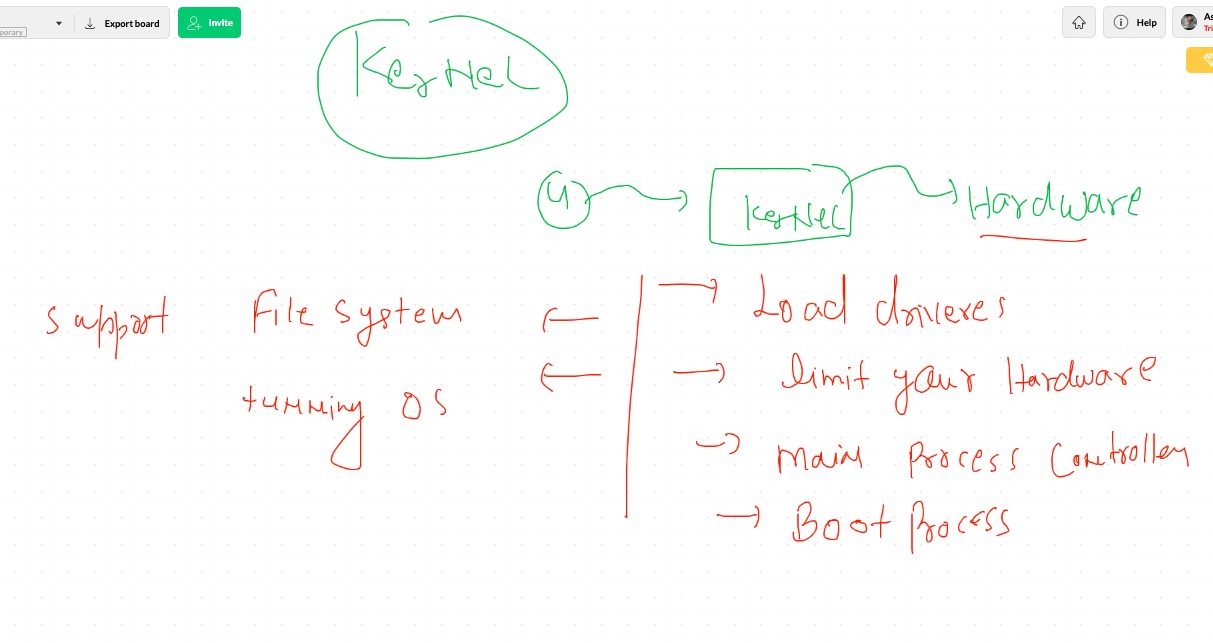 porary
Export board
Invite
Help
As
Tri
Kernel
U
Kernel
Hardware
Support File System
tunning OS
Load driveres
limit your Hardware
Main Process Controller
Boot Process